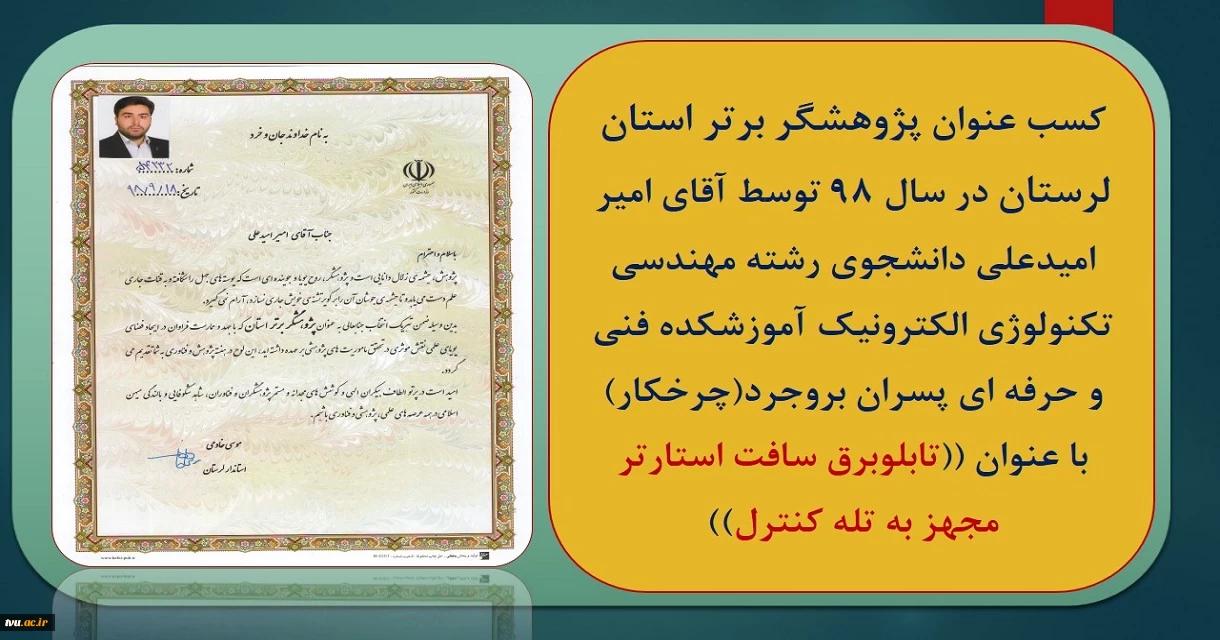 کسب عنوان پژوهشگر برتر استان
لرستان در سال ۹۸ توسط آقای امیر
امیدعلی دانشجوی رشته مهندسی
تکنولوژی الکترونیک آموزشکده فنی
و حرفه ای پسران بروجرد(چرخکار)
با عنوان ((تابلوبرق سافت استارتر
مجهز به تله کنترل))
به نام خداوند جان و خرد
شماره: ۵۴۲۳۲
تاریخ: ۹۸/۹/۱۸
جمهوری اسلامی ایران
وزارت کشور
جناب آقای امیر امیدعلی
باسلام و احترام
پژوهش، چشمه ی زلال دانایی است و پژوهشگر، روح پویا و جوینده ای است که پوسته های جهل را شکافته و به قنات جاری
علم دست می یابد و تا چشمه ی جوشان آن را بر کویر تشنه ی خویش جاری نسازد، آرام نمی گیرد.
بدین وسیله ضمن تبریک انتخاب جنابعالی به عنوان پژوهشگر برتر استان که با جهد و ممارست فراوان در ایجاد فضای
پویای علمی نقش موثری در تحقق ماموریت های پژوهشی بر عهده داشته اید، این لوح در هفته پژوهش و فناوری به شما تقدیم می
گردد.
امید است در پرتو الطاف بیکران الهی و کوشش های مجدانه و مستمر پژوهشگران و فناوران، شاهد شکوفایی و بالندگی میهن
اسلامی در همه عرصه های علمی، پژوهشی و فناوری باشیم.
موسی خادمی
استاندار لرستان
tvu.ac.ir